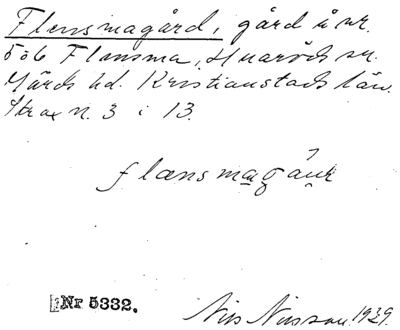 Flensmagård, gård å nr.
5 o 6 Flensma, Huaröds sn.
Gärds hd. Kristianstads län.
Strax n. 3 i 13.
flænsmagår
Nr 5332.
Nils Nilsson 1929.